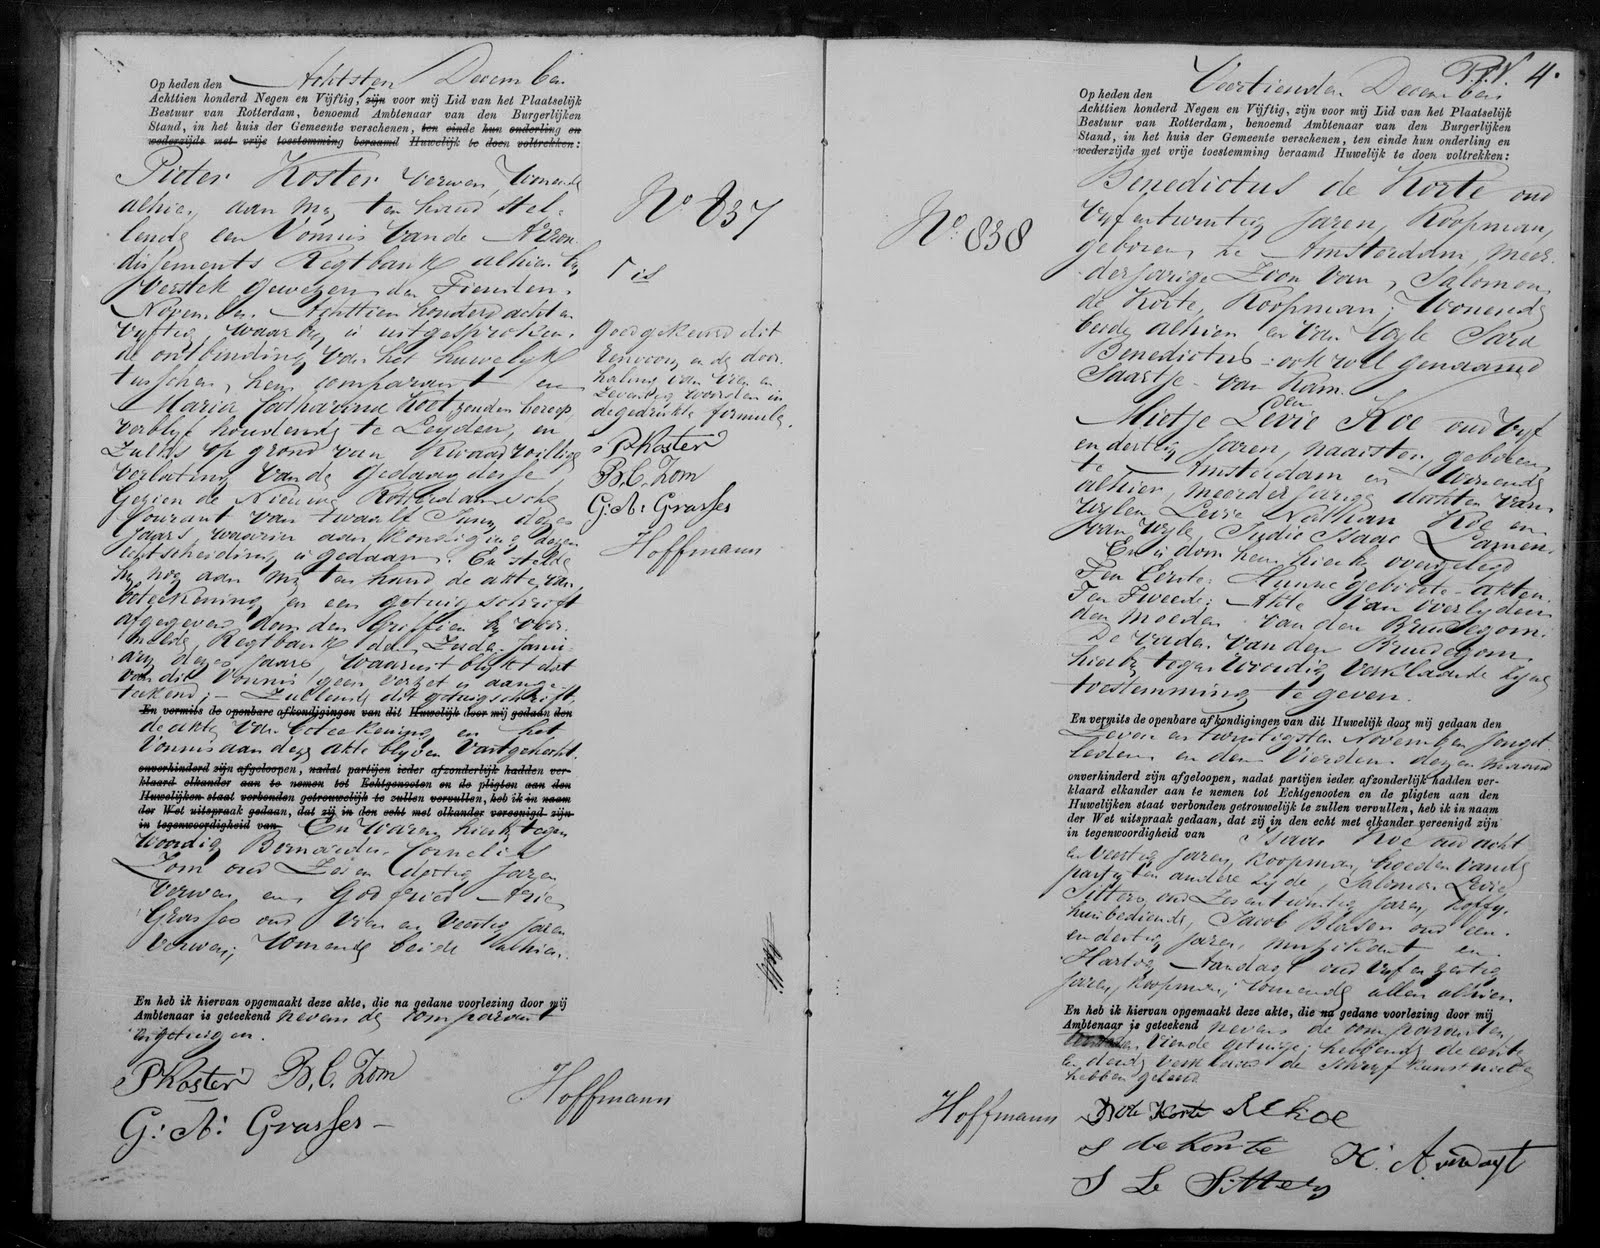 Op heden den Achtsten December
Achttien honderd Negen en Vijftig, ┌ zijn voor mij Lid van het Plaatselijk
Bestuur van Rotterdam, benoemd Ambtenaar van den Burgerlijken
Stand, in het huis der Gemeente verschenen, ten einde hun onderling en
wederzijds met vrije toestemming beraamd Huwelijk te doen voltrekken:
Pieter Koster Verwer, Wonende
alhier, aan mij ter hand stel-
lende een Vonnis van de Arron
dissements Regtbank alhier bij
verstek gewezen den Tienden
November Achttien honderd acht en
vyftig, waarby is uitgesproken
de ontbinding van het huwelyk
tusschen, hem comparant en
Maria Catharina Koot zonder beroep,
verblyf houdende te Leyden, en
zulks op grond van Kwaadwillige
verlating van de gedaagdesse,
Gezien de Nieuwe Rotterdamsche
Courant van twaalf Juny dezes
Jaars, waarin aankondiging dezer
echtscheiding is gedaan. En stelde
hy nog aan my ter hand de akte van
beteekening en een getuigschrift
afgegeven door den Griffier by voor-
melde Regtbank den Zesden Janu-
ary dezes Jaars, waaruit blykt dat
van dit Vonnis geen verzet is aange-
teekend; - Zullende dit getuigschrift,
En vermits de openbare afkondigingen van dit Huwelijk door mij gedaan den
de akte van beteekening en het
Vonnis aan deze akte blyven vastgehecht.
onverhinderd zijn afgeloopen, nadat partijen ieder afzonderlijk hadden ver-
klaard elkander aan te nemen tot Echtgenooten en de pligten aan den
Huwelijken staat verbonden getrouwelijk te zullen vervullen, heb ik in naam
der Wet uitspraak gedaan, dat zij in den echt met elkander vereenigd zijn
in tegenwoordigheid van En waren hierby tegen
woordig Bernardus Cornelis
Zom oud Zes en dertig Jaren
Verwer, en Godfried Arie
Grasses oud Vier en Veertig Jaren
Verwer; Wonende beide alhier.
En heb ik hiervan opgemaakt deze akte, die na gedane voorlezing door mij
Ambtenaar is geteekend nevens de comparant
en getuigen.
P Koster B. C. Zom
G: A: Grasses
Hoffmann
No 837
┌ is
Goedgekeurd dit
renvooy en de door
haling van vier en
Zeventig woorden in
de gedrukte formule.
P Koster
B. C. Zom
G: A: Grasses
Hoffmann
4.
Op heden den Veertienden December
Achttien honderd Negen en Vijftig, zijn voor mij Lid van het Plaatselijk
Bestuur van Rotterdam, benoemd Ambtenaar van den Burgerlijken
Stand, in het huis der Gemeente verschenen, ten einde hun onderling en
wederzijds met vrije toestemming beraamd Huwelijk te doen voltrekken:
No 838
Benedictus de Korte oud
vyf en twintig Jaren, Koopman,
geboren te Amsterdam, meer-
derjarige Zoon van, Salomon
de Korte, Koopman; Wonende
beide alhier en van wyle Sara
Benedictus - ook wel genaamd
Saartje - van Kam.
Mietje Levie Koe oud vyf
en dertig Jaren, naaister, geboren
te Amsterdam en Wonende
alhier, meerderjarige dochter van
wylen Levie Nathan Koe en
van wyle Judic Isaac
En is door hen hierby overgelegd
Ten Eerste: Hunne geboorte-akten.
Ten Tweede: Akte van overlyden
der moeder van den Bruidegom.
De Vader van den Bruidegom
hierby tegenwoordig verklaarde zyne
toestemming te geven.
En vermits de openbare afkondigingen van dit Huwelijk door mij gedaan den
Zeven en twintigsten November Jongst-
leden en den Vierden dezer maand
onverhinderd zijn afgeloopen, nadat partijen ieder afzonderlijk hadden ver-
klaard elkander aan te nemen tot Echtgenooten en de pligten aan den
Huwelijken staat verbonden getrouwelijk te zullen vervullen, heb ik in naam
der Wet uitspraak gedaan, dat zij in den echt met elkander vereenigd zijn
in tegenwoordigheid van Isaac Koe oud acht
en veertig Jaren, Koopman, broeder van de
party ten andere zyde, Salomon Levie
Sitters, oud Zes en twintig Jaren, Koffy-
huisbediende, Jacob Blasen oud een
en dertig Jaren, muzikant en
Hartog Aandagt oud Vyf en
Jaren, Koopman; Wonende allen alhier.
En heb ik hiervan opgemaakt deze akte, die na gedane voorlezing door mij
Ambtenaar is geteekend nevens de comparanten
Vierde getuige; hebbende de eerste
en derde verklaard de Schryf Kunst niet te
hebben geleerd.
Hoffmann
B de Korte
S de Korte
H. Aandagt
S Le Sitters